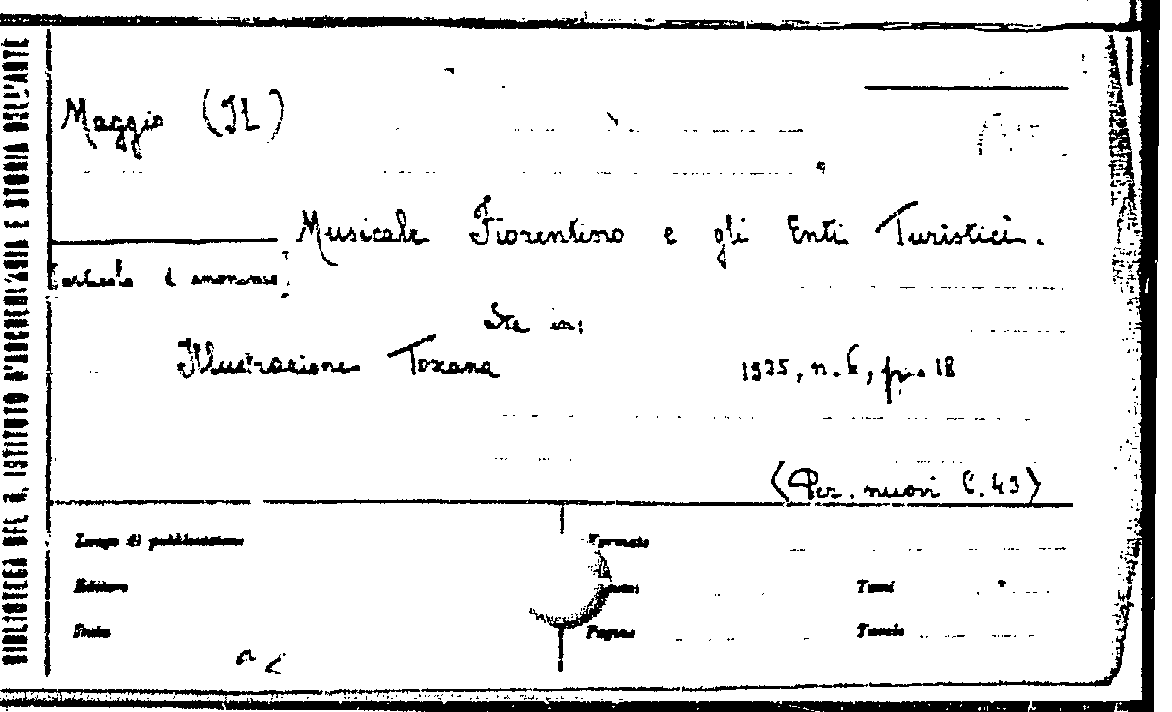 BIBLIOTECA DEL R. ISTITUTO D'ARCHEOLOGIA E STORIA DELL'ARTE
Maggio (Il)
Musicale Fiorentino e gli Enti Turistici.
[articolo anonimo]
Sta in:
Illustrazione Toscana 1935, n. 6, p. 18
(Per. nuovi C. 43)
Luogo di pubblicazione
Formato
Editore
Tomi
Data
Pagine
Tavole